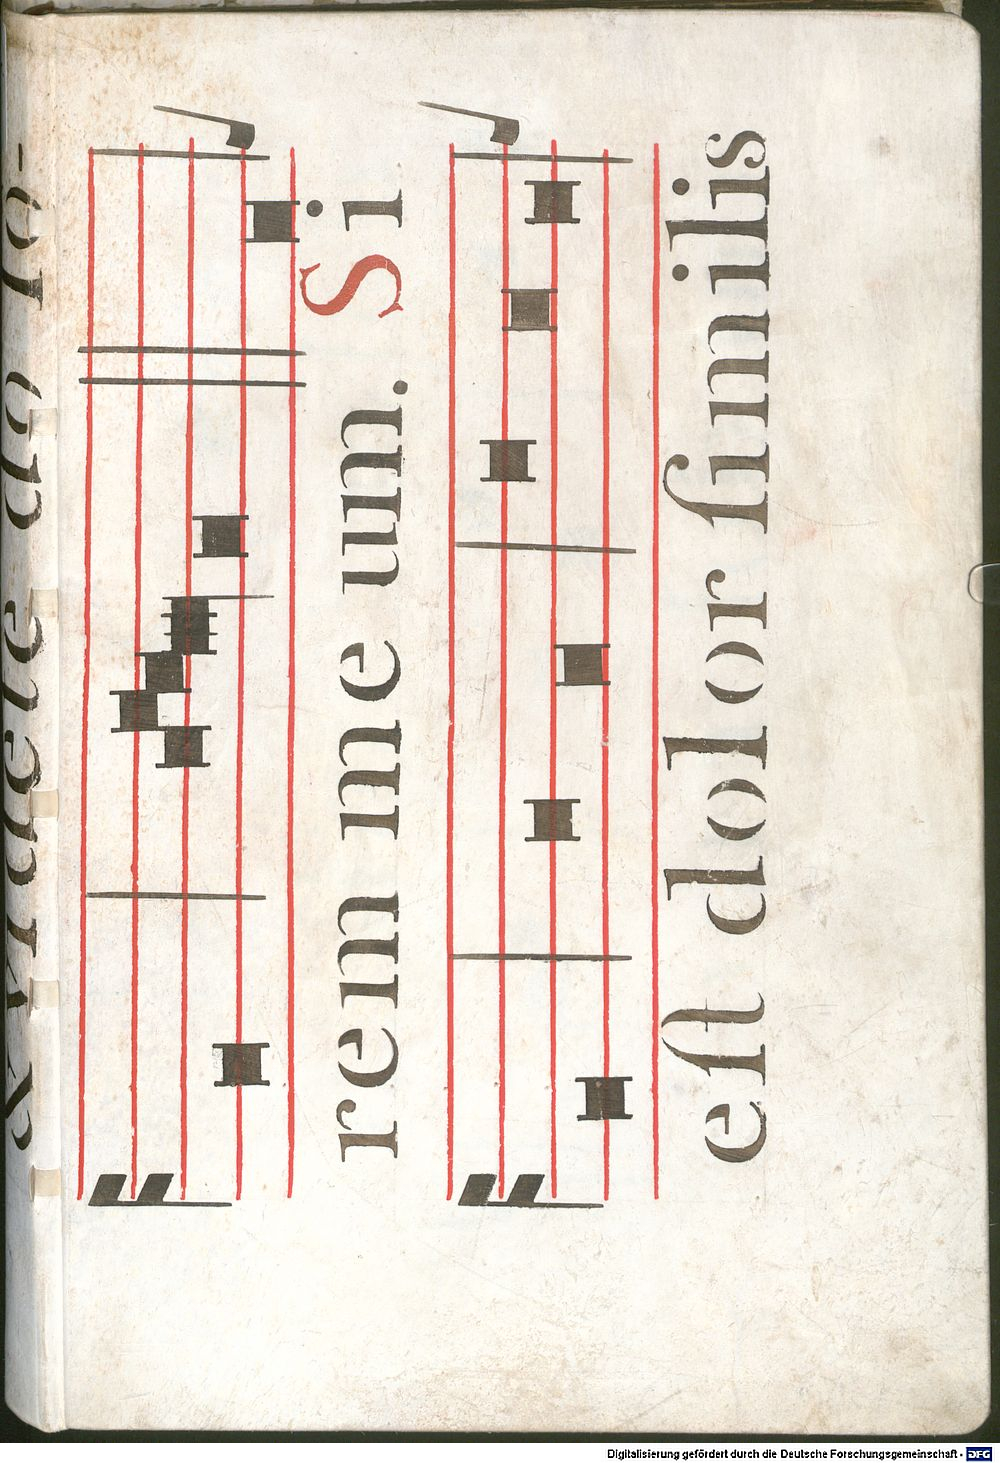 & videte do lo-
rem me um. Si
eſt dolor ſimilis
Digitalisierung gefördert durch die Deutsche Forschungsgemeinschaft - DFG